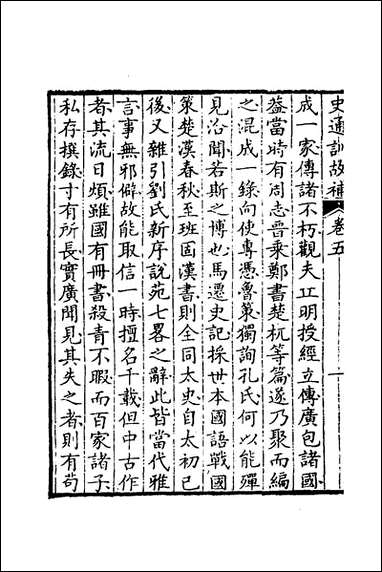 史通訓故補 卷五 一
成一家傳諸不朽觀夫丘明授經立傳廣包諸國
葢當時有周志晉乗鄭書楚杌等篇遂乃聚而編
之混成一錄向使專憑魯策獨詢孔氏何以能殫
見洽聞若斯之博也馬遷史記採世本國語戰國
策楚漢春秋至班固漢書則全同太史自太初已
後又雜引劉氏新序說苑七畧之辭此皆當代雅
言事無邪僻故能取信一時擅名千載但中古作
者其流日煩雖國有冊書殺青不暇而百家諸子
私存撰錄寸有所長實廣聞見其失之者則有苟